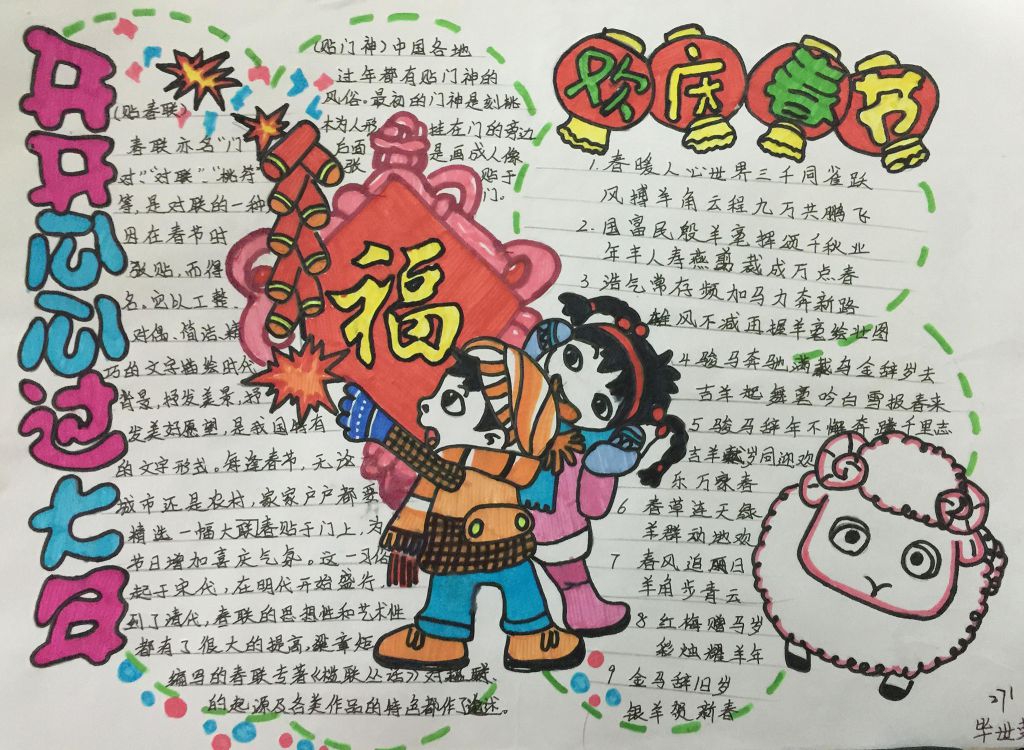 开开心心过大年
(贴春联)
春联亦名“门
对”“对联”、“桃符”
等,是对联的一种
因在春节时
张贴,而得
名。它以工整、
对偶、简洁、精
巧的文字描绘时代
背景,抒发美景,抒
发美好愿望,是我国特有
的文字形式。每逢春节,无论
城市还是农村,家家户户都要
精选一幅大联春贴于门上,为
节日增加喜庆气氛。这一习俗
起于宋代,在明代开始盛行,
到了清代,春联的思想性和艺术性
都有了很大的提高,梁章钜
编写的春联专著《楹联丛话》对楹联
的起源及各类作品的特色都作了论述。
(贴门神)中国各地
过年都有贴门神的
风俗。最初的门神是刻桃
木为人形 挂在门的旁边
后面 是画成人像
张 贴于
门。
福
欢庆春节
1.春暖人心世界三千同雀跃
风搏羊角云程九万共鹏飞
2.国富民殷羊毫挥颂千秋业
年丰人寿燕剪裁成万点春
3 浩气常存频加马力奔新路
雄风不减再握羊毫绘壮图
4 骏马奔驰满载乌金辞岁去
吉羊起舞更吟白雪报春来
5 骏马辞年不懈奔腾千里志
吉羊献岁同迎欢
乐万家春
6 春草连天绿
羊群动地欢
7 春风追丽日
羊角步青云
8 红梅赠马岁
彩烛耀羊年
9 金马辞旧岁
银羊贺新春
271
毕世